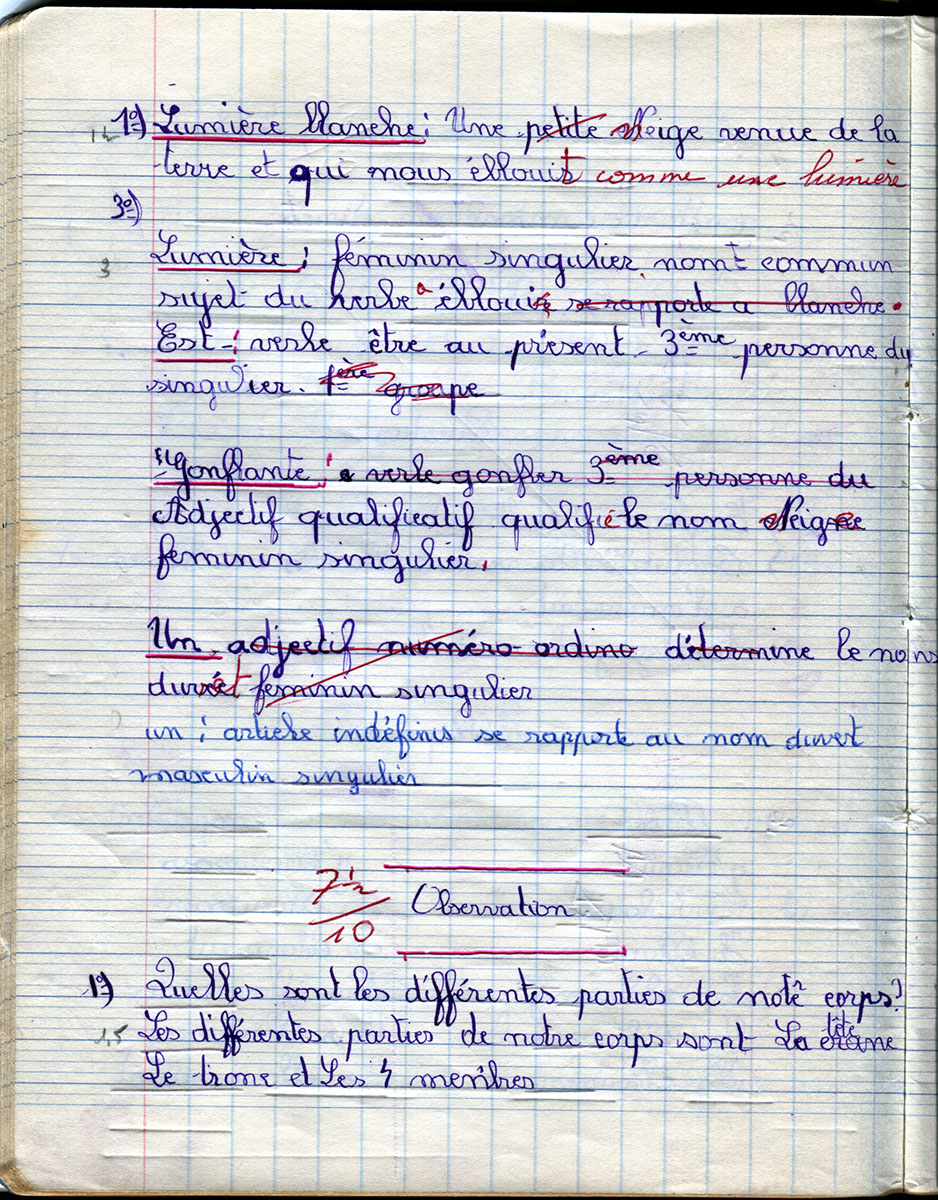 1º) Lumière blanche : Une petite Neige venue de la
terre et qui nous éblouit comme une lumière
3º)
3 Lumière : féminin singulier. nom commun
sujet du verbe éblouir se rapporte a blanche.
Est : verbe être au présent 3ème personne du
singulier. 1ère groupe
gonflante : verbe gonfler 3ème personne du
Adjectif qualificatif qualifie le nom Neige
feminin singulier.
Un. adjectif numéro ordino détermine le nom
duvet feminin singulier
un : article indéfinis se rapporte au nom duvet
masculin singulier
7 1/2
10 Observation.
1º) Quelles sont les différentes parties de notê corps?
1,5 Les différentes parties de notre corps sont La crâne tête
Le tronc et Les 4 membres